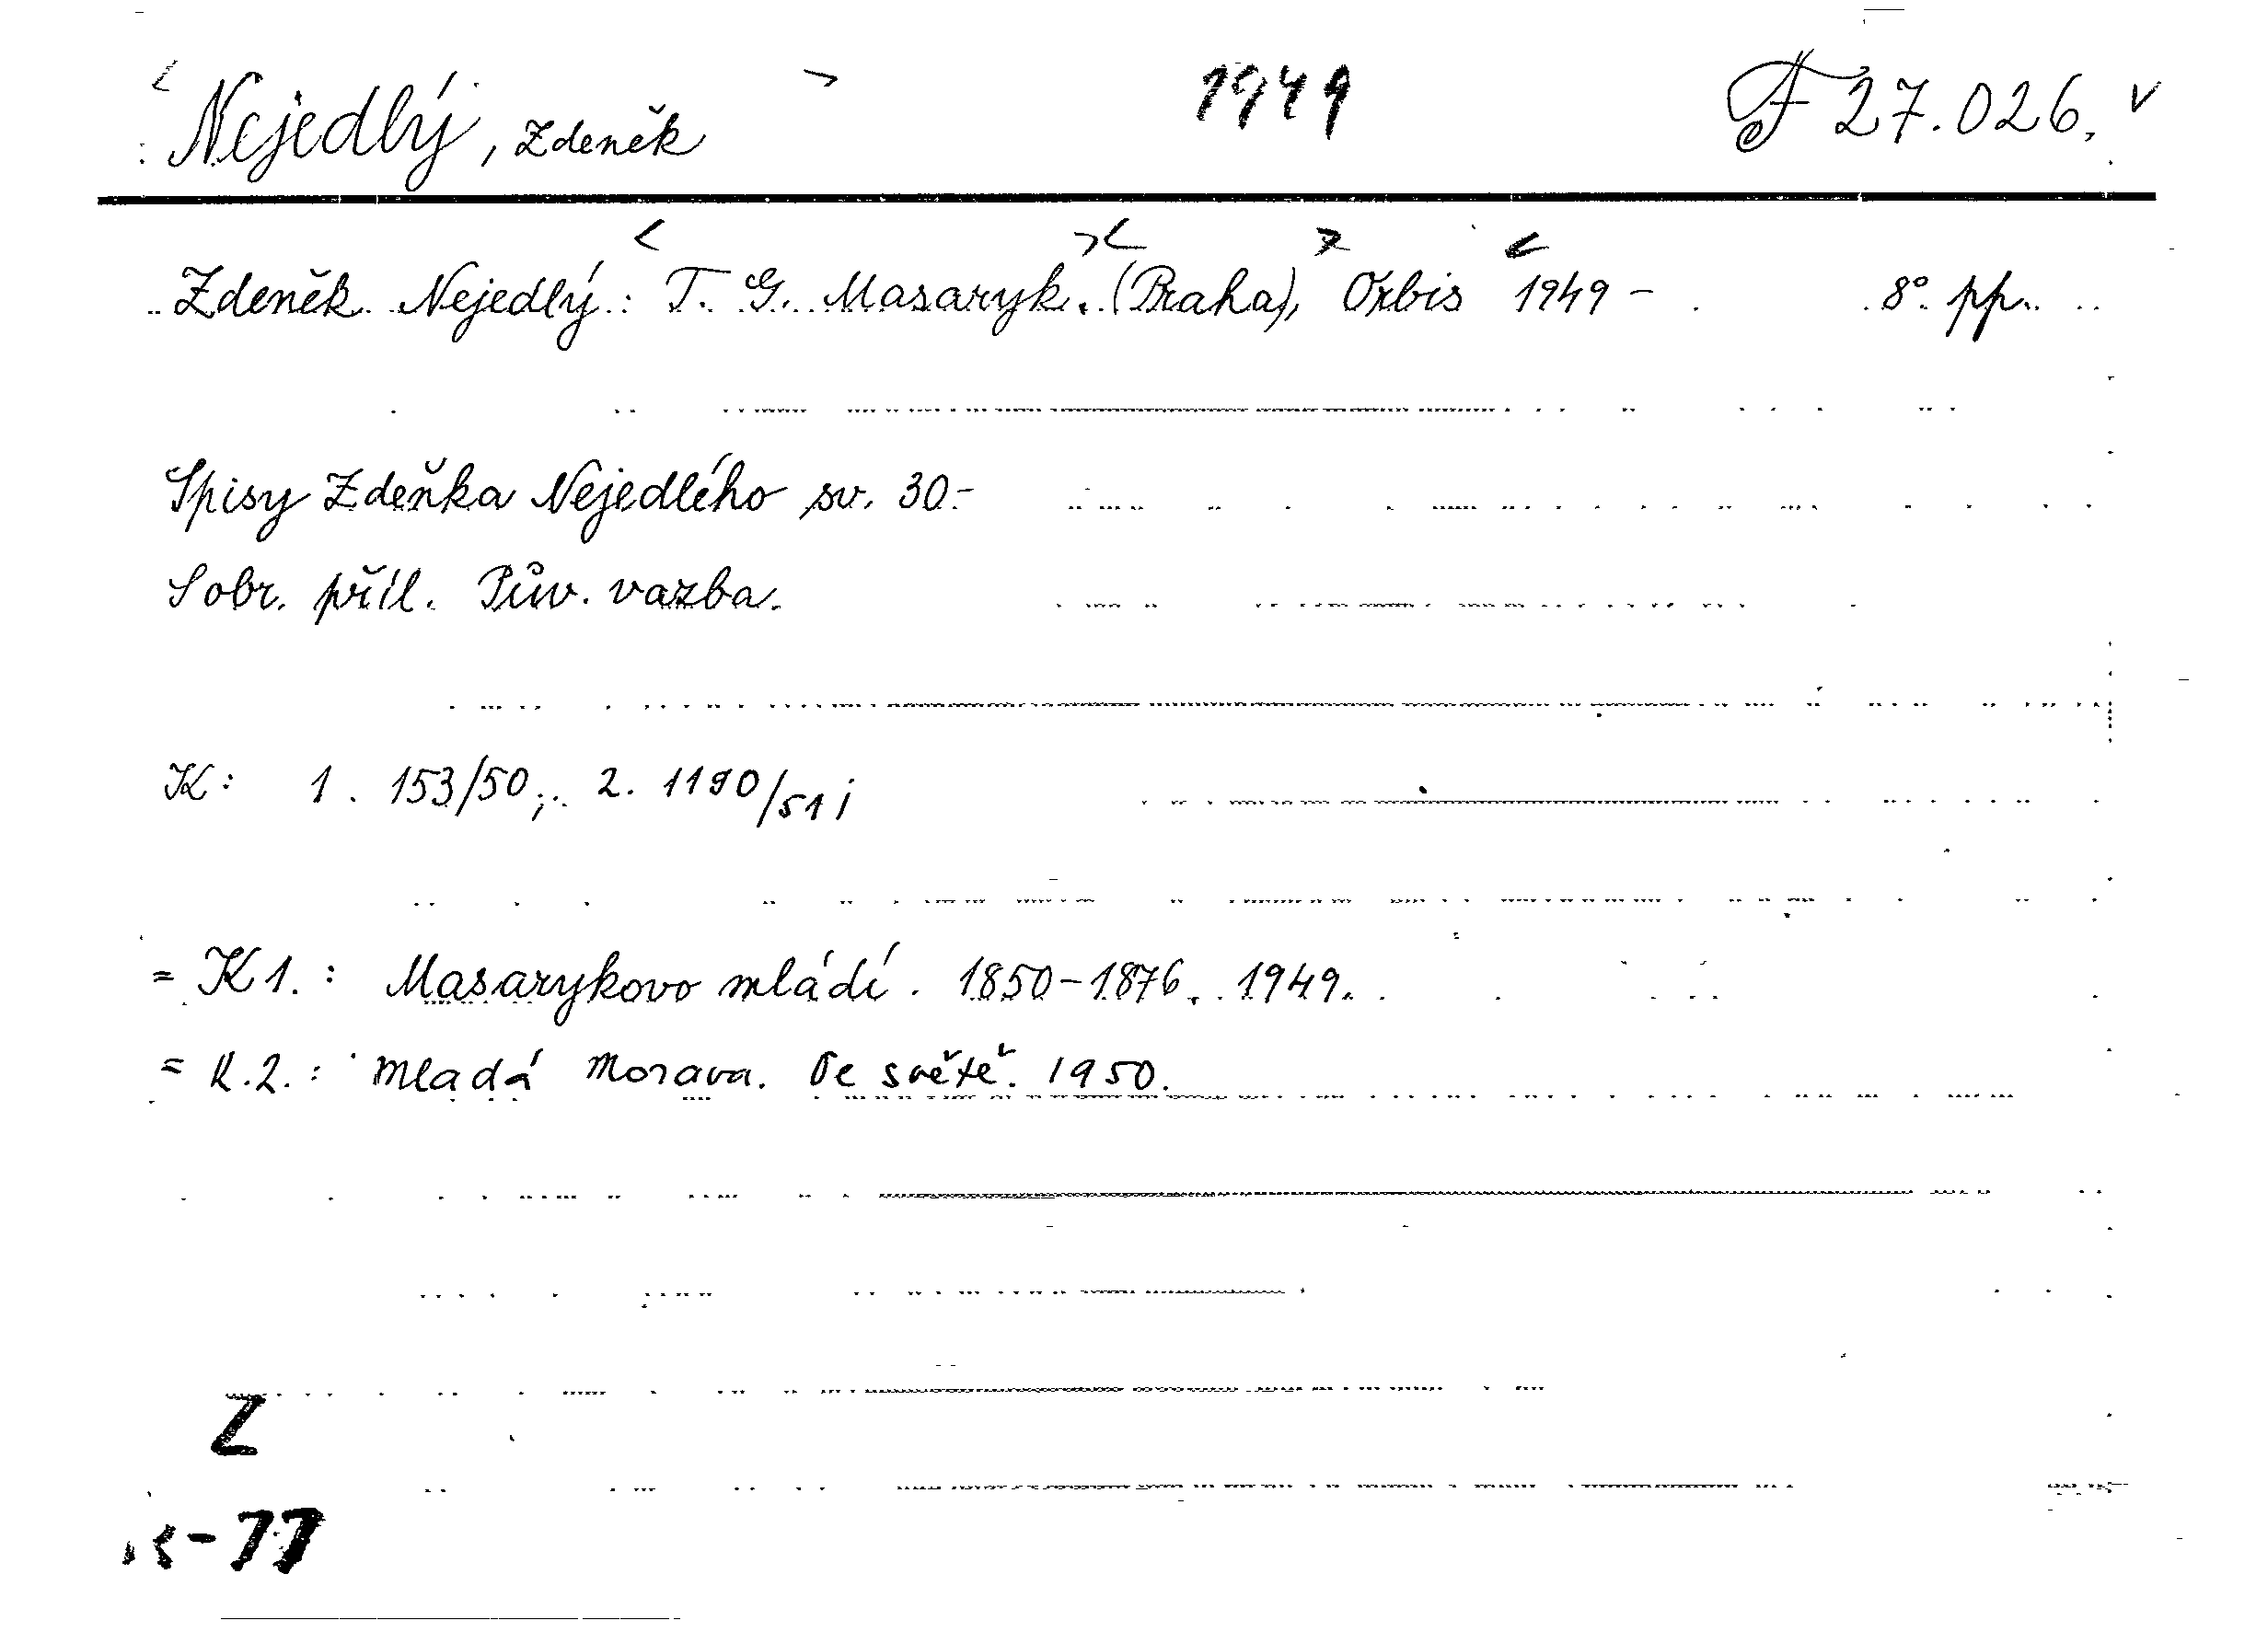 Nejedlý, Zdeněk 1949 F 27.026.
Zdeněk Nejedlý: T. G. Masaryk. (Praha), Orbis 1949 - 8° pp.
Spisy Zdeňka Nejedlého sv. 30.-
S obr. příl. Pův. vazba.
K: 1. 153/50; 2. 1190/51 i
= K 1. : Masarykovo mládí. 1850-1876. 1949.
= K.2. : Mladá Morava. Ve světě. 1950.
Z
-77